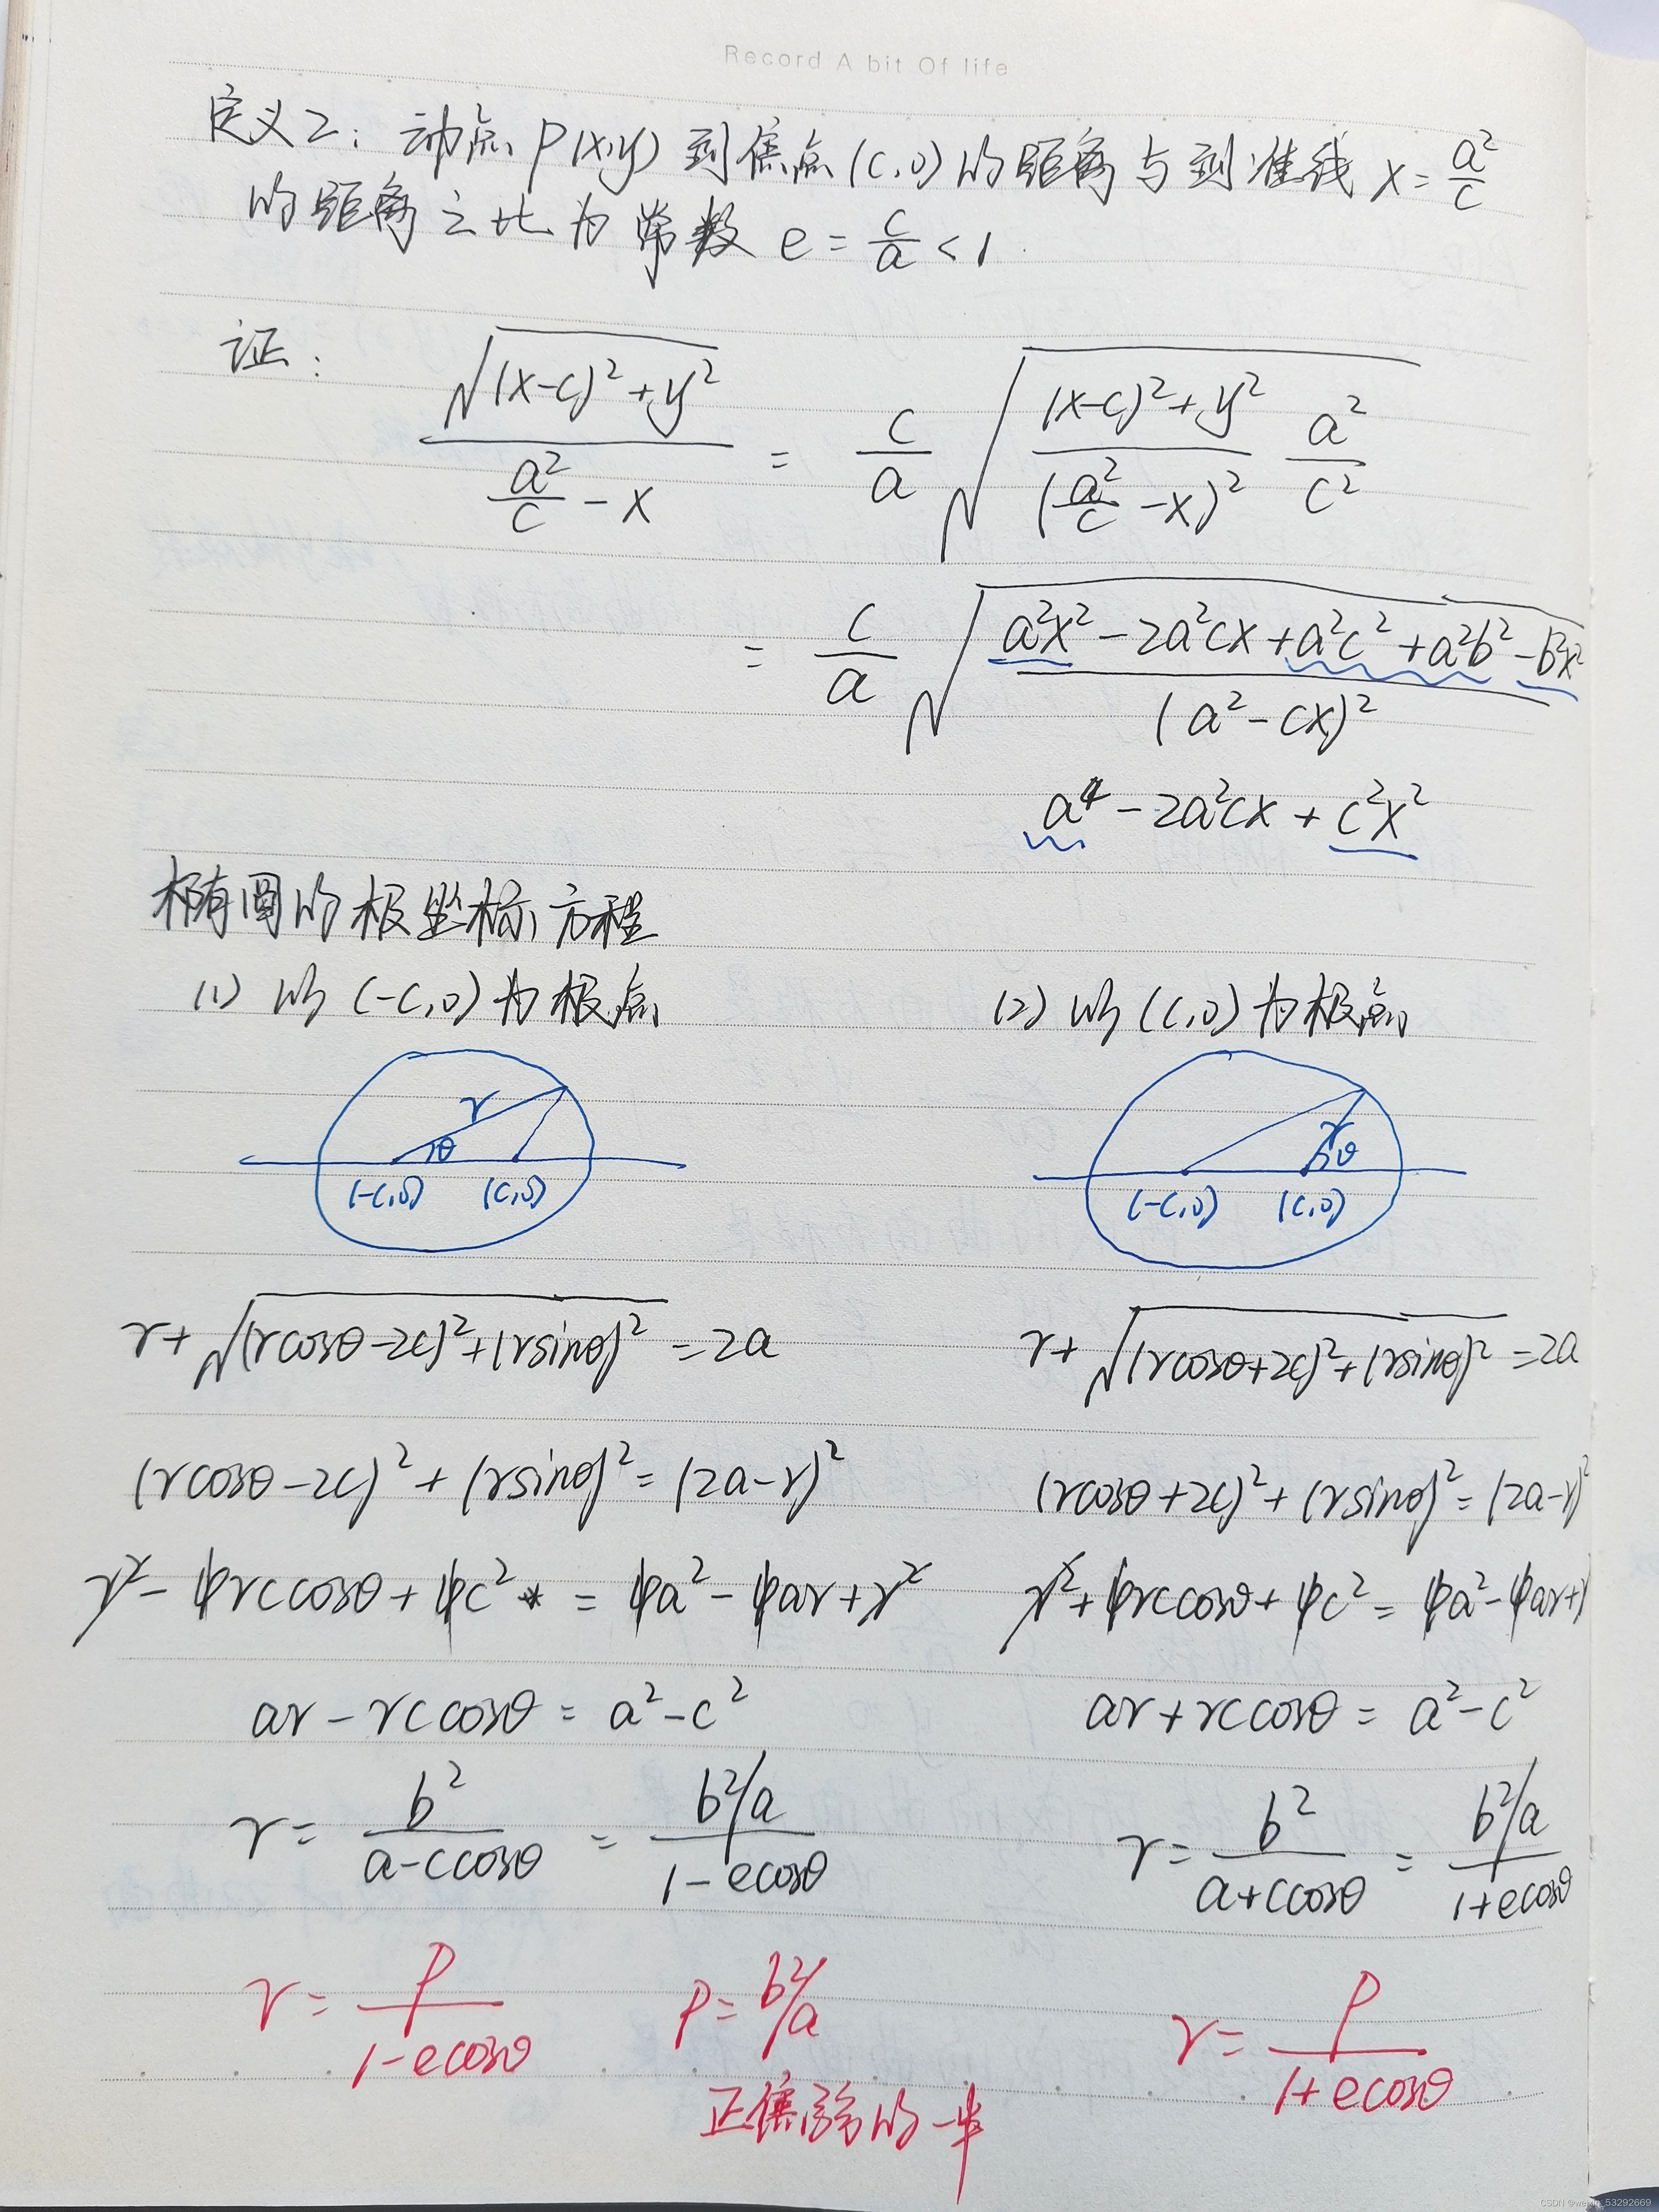 Record A bit Of life
定义2: 动点 P(x,y) 到焦点 (c,0) 的距离与到准线 x = a²/c
的距离之比为常数 e = c/a < 1
证:
√((x-c)²+y²) / (a²/c - x) = c/a √( ((x-c)²+y²) / (a²/c - x)² · a²/c² )
= c/a √( (a²x² - 2a²cx + a²c² + a²b² - b²x²) / (a² - cx)² )
a⁴ - 2a²cx + c²x²
椭圆的极坐标方程
(1) 以 (-c,0) 为极点
(2) 以 (c,0) 为极点
r
θ
(-c,0) (c,0)
r
θ
(-c,0) (c,0)
r + √((rcosθ-2c)²+(rsinθ)²) = 2a
(rcosθ-2c)² + (rsinθ)² = (2a-r)²
r² - 4rccosθ + 4c² = 4a² - 4ar + r²
ar - rccosθ = a²-c²
r = b²/(a-ccosθ) = (b²/a)/(1-ecosθ)
r = p/(1-ecosθ) p = b²/a
正焦弦的一半
r + √((rcosθ+2c)²+(rsinθ)²) = 2a
(rcosθ+2c)² + (rsinθ)² = (2a-r)²
r² + 4rccosθ + 4c² = 4a² - 4ar + r
ar + rccosθ = a²-c²
r = b²/(a+ccosθ) = (b²/a)/(1+ecosθ)
r = p/(1+ecosθ)
CSDN @weixin_53292669